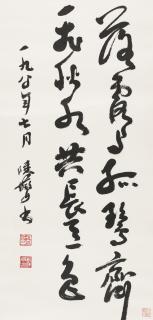 落霞与孤鶩齊
飛秋水共長天一色
一九八年七月